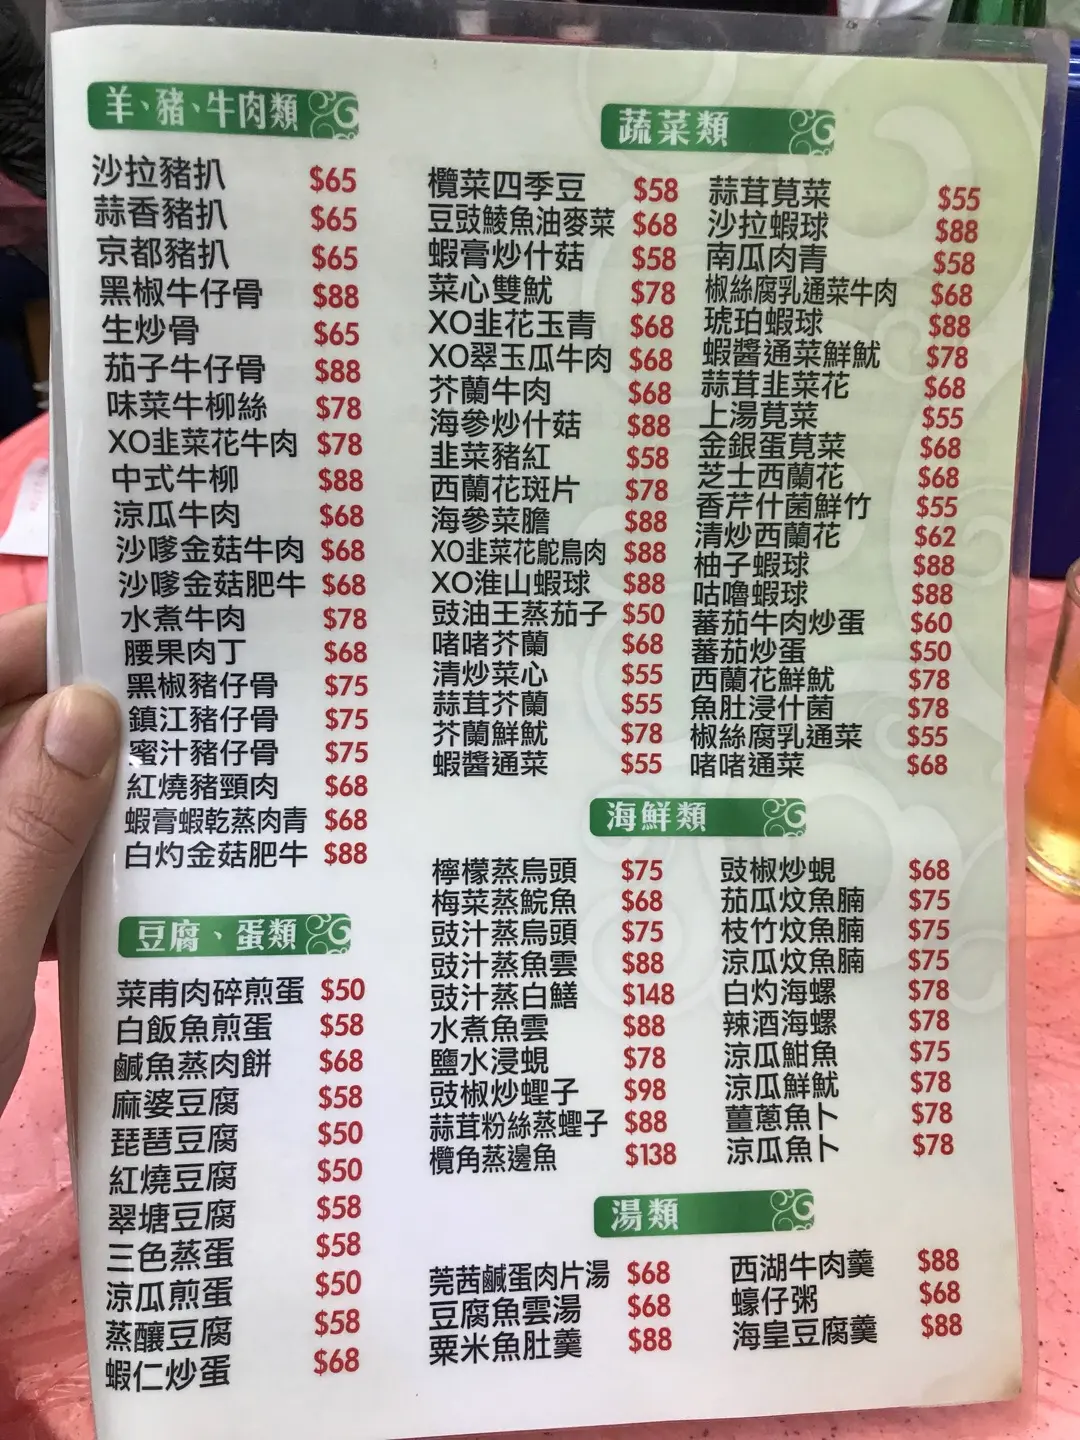 羊、豬、牛肉類
沙拉豬扒 $65
蒜香豬扒 $65
京都豬扒 $65
黑椒牛仔骨 $88
生炒骨 $65
茄子牛仔骨 $88
味菜牛柳絲 $78
XO韭菜花牛肉 $78
中式牛柳 $88
涼瓜牛肉 $68
沙嗲金菇牛肉 $68
沙嗲金菇肥牛 $68
水煮牛肉 $78
腰果肉丁 $68
黑椒豬仔骨 $75
鎮江豬仔骨 $75
蜜汁豬仔骨 $75
紅燒豬頸肉 $68
蝦膏蝦乾蒸肉青 $68
白灼金菇肥牛 $88
豆腐、蛋類
菜甫肉碎煎蛋 $50
白飯魚煎蛋 $58
鹹魚蒸肉餅 $68
麻婆豆腐 $58
琵琶豆腐 $50
紅燒豆腐 $50
翠塘豆腐 $58
三色蒸蛋 $58
涼瓜煎蛋 $50
蒸釀豆腐 $58
蝦仁炒蛋 $68
蔬菜類
欖菜四季豆 $58
豆豉鯪魚油麥菜 $68
蝦膏炒什菇 $58
菜心雙魷 $78
XO韭花玉青 $68
XO翠玉瓜牛肉 $68
芥蘭牛肉 $68
海參炒什菇 $88
韭菜豬紅 $58
西蘭花斑片 $78
海參菜膽 $88
XO韭菜花鴕鳥肉 $88
XO淮山蝦球 $88
豉油王蒸茄子 $50
啫啫芥蘭 $68
清炒菜心 $55
蒜茸芥蘭 $55
芥蘭鮮魷 $78
蝦醬通菜 $55
蒜茸莧菜 $55
沙拉蝦球 $88
南瓜肉青 $58
椒絲腐乳通菜牛肉 $68
琥珀蝦球 $88
蝦醬通菜鮮魷 $78
蒜茸韭菜花 $68
上湯莧菜 $55
金銀蛋莧菜 $68
芝士西蘭花 $68
香芹什菌鮮竹 $55
清炒西蘭花 $62
柚子蝦球 $88
咕嚕蝦球 $88
蕃茄牛肉炒蛋 $60
蕃茄炒蛋 $50
西蘭花鮮魷 $78
魚肚浸什菌 $78
椒絲腐乳通菜 $55
啫啫通菜 $68
海鮮類
檸檬蒸烏頭 $75
梅菜蒸鯇魚 $68
豉汁蒸烏頭 $75
豉汁蒸魚雲 $88
豉汁蒸白鱔 $148
水煮魚雲 $88
鹽水浸蜆 $78
豉椒炒蟶子 $98
蒜茸粉絲蒸蟶子 $88
欖角蒸邊魚 $138
豉椒炒蜆 $68
茄瓜炆魚腩 $75
枝竹炆魚腩 $75
涼瓜炆魚腩 $75
白灼海螺 $78
辣酒海螺 $78
涼瓜鮒魚 $75
涼瓜鮮魷 $78
薑蔥魚卜 $78
涼瓜魚卜 $78
湯類
莞茜鹹蛋肉片湯 $68
豆腐魚雲湯 $68
粟米魚肚羹 $88
西湖牛肉羹 $88
蠔仔粥 $68
海皇豆腐羹 $88